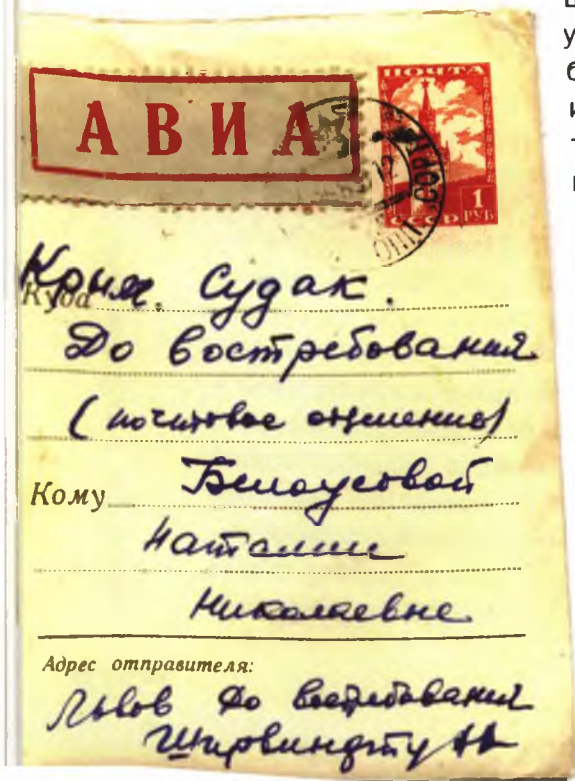 АВИА
ПОЧТА
1 РУБ
СССР
Куда Крым. Судак.
До востребования
(почтовое отделение)
Кому Белоусовой
Наталии
Николаевне
Адрес отправителя:
Львов До востребования
Ширвиндту АА